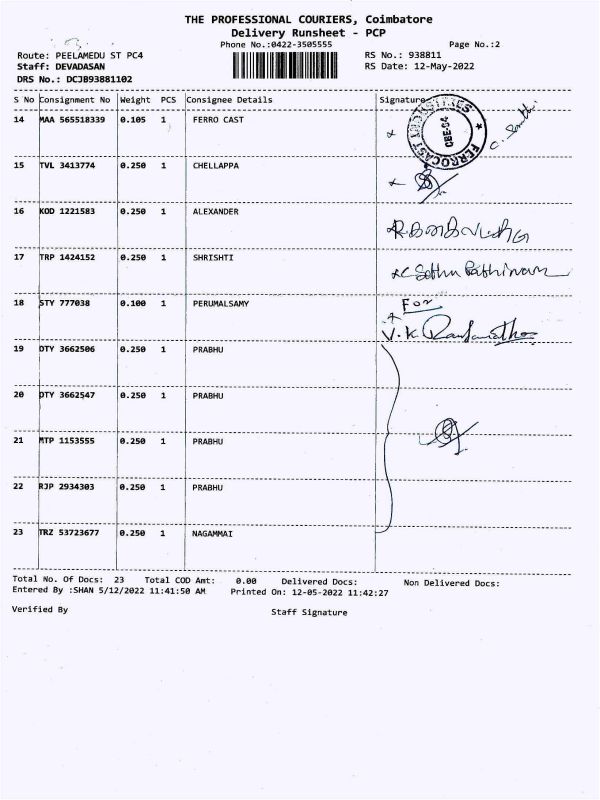 THE PROFESSIONAL COURIERS, Coimbatore
Delivery Runsheet - PCP
Phone No.:0422-3505555 Page No.:2
Route: PEELAMEDU ST PC4 RS No.: 938811
Staff: DEVADASAN RS Date: 12-May-2022
DRS No.: DCJB93881102
S No Consignment No Weight PCS Consignee Details Signature
14 MAA 565518339 0.105 1 FERRO CAST
FERROCAST INDUSTRIES
CBE-04
15 TVL 3413774 0.250 1 CHELLAPPA
16 KOD 1221583 0.250 1 ALEXANDER
17 TRP 1424152 0.250 1 SHRISHTI
18 STY 777038 0.100 1 PERUMALSAMY For
V.K
19 DTY 3662506 0.250 1 PRABHU
20 DTY 3662547 0.250 1 PRABHU
21 MTP 1153555 0.250 1 PRABHU
22 RJP 2934303 0.250 1 PRABHU
23 TRZ 53723677 0.250 1 NAGAMMAI
Total No. Of Docs: 23 Total COD Amt: 0.00 Delivered Docs: Non Delivered Docs:
Entered By :SHAN 5/12/2022 11:41:50 AM Printed On: 12-05-2022 11:42:27
Verified By Staff Signature